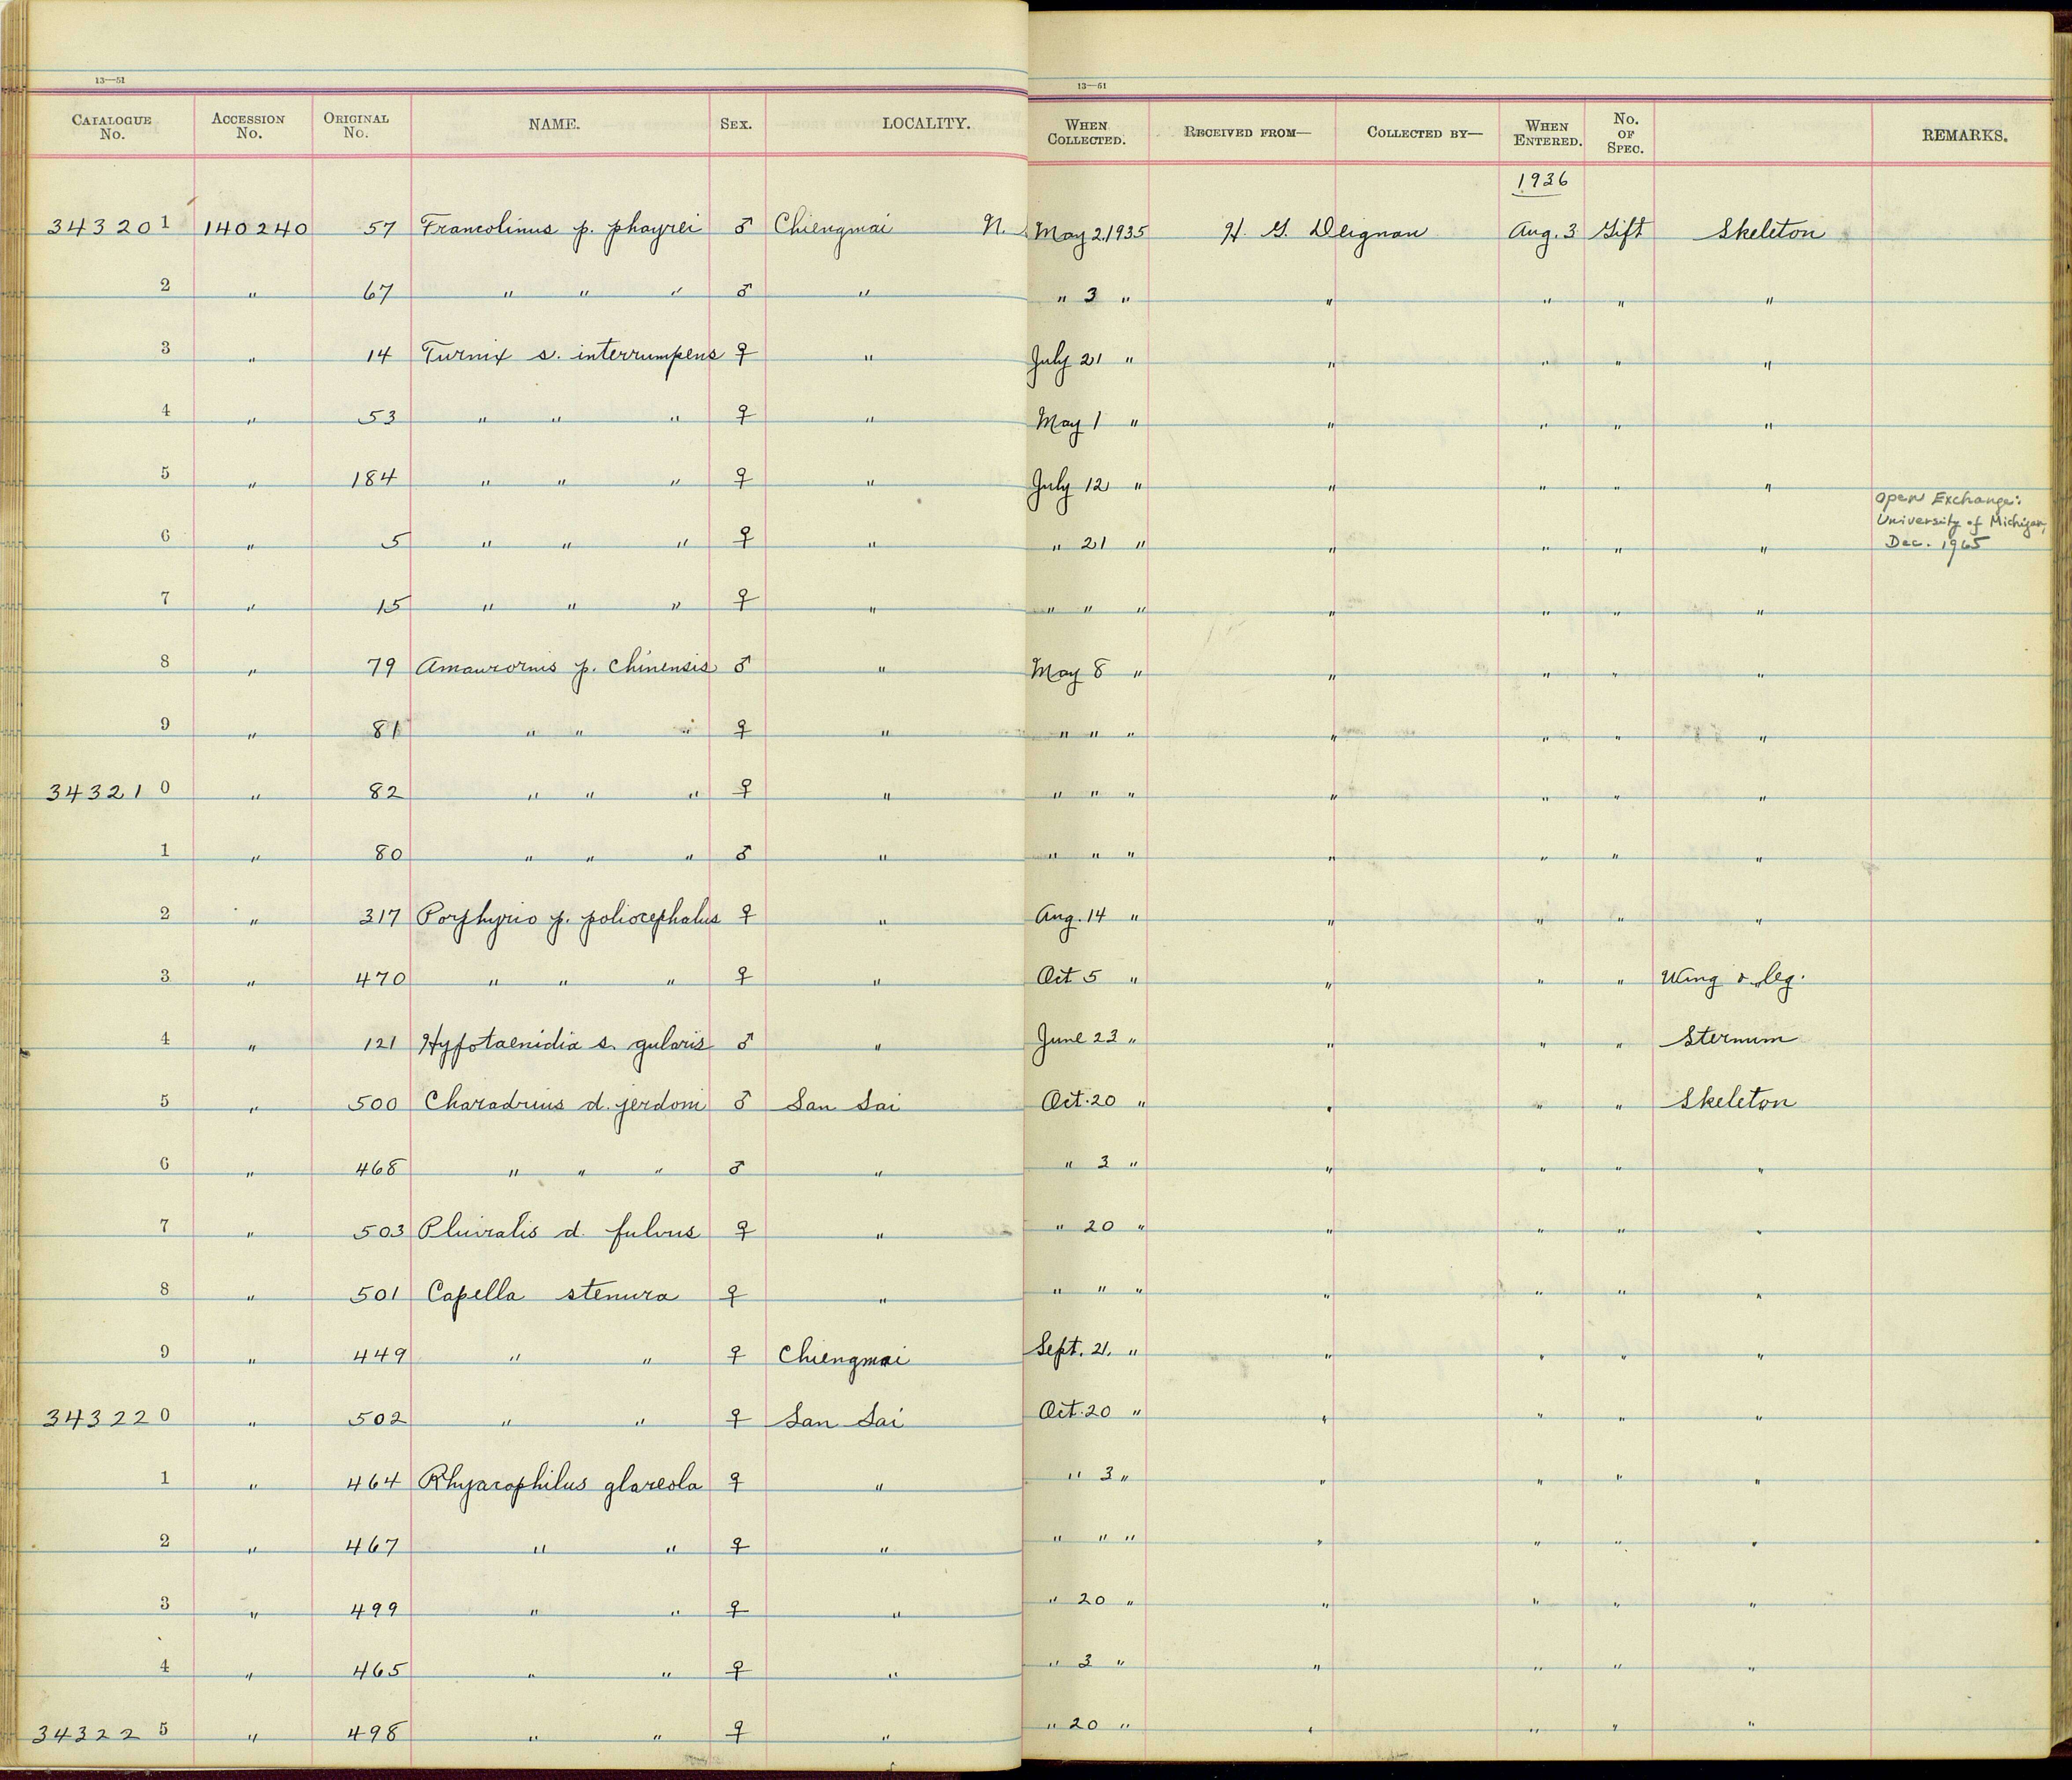 13—51
13—51
CATALOGUE No. ACCESSION No. ORIGINAL No. NAME. SEX. LOCALITY. WHEN COLLECTED. RECEIVED FROM— COLLECTED BY— WHEN ENTERED. No. OF SPEC. REMARKS.
1936
343201 140240 57 Francolinus p. phayrei ♂ Chiengmai N. May 2, 1935 H. G. Deignan Aug. 3 Gift Skeleton
2 " 67 " " " ♂ " " 3 " " " " "
3 " 14 Turnix s. interrumpens ♀ " July 21 " " " " "
4 " 53 " " " ♀ " May 1 " " " " "
5 " 184 " " " ♀ " July 12 " " " " "
Open Exchange:
University of Michigan,
6 " 5 " " " ♀ " " 21 " " " " " Dec. 1965
7 " 15 " " " ♀ " " " " " " " "
8 " 79 Amaurornis p. Chinensis ♂ " May 8 " " " " "
9 " 81 " " " ♀ " " " " " " " "
343210 " 82 " " " ♀ " " " " " " " "
1 " 80 " " " ♂ " " " " " " " "
2 " 317 Porphyrio p. poliocephalus ♀ " Aug. 14 " " " " "
3 " 470 " " " ♀ " Oct 5 " " " " Wing & leg.
4 " 121 Hypotaenidia s. gularis ♂ " June 23 " " " " Sternum
5 " 500 Charadrius d. jerdoni ♂ San Sai Oct. 20 " " " " Skeleton
6 " 468 " " " ♂ " " 3 " " " " "
7 " 503 Pluvialis d. fulvus ♀ " " 20 " " " " "
8 " 501 Capella stenura ♀ " " " " " " " "
9 " 449 " " ♀ Chiengmai Sept. 21. " " " " "
343220 " 502 " " ♀ San Sai Oct. 20 " " " " "
1 " 464 Rhyacophilus glareola ♀ " " 3 " " " " "
2 " 467 " " ♀ " " " " " " " "
3 " 499 " " ♀ " " 20 " " " " "
4 " 465 " " ♀ " " 3 " " " " "
343225 " 498 " " ♀ " " 20 " " " " "